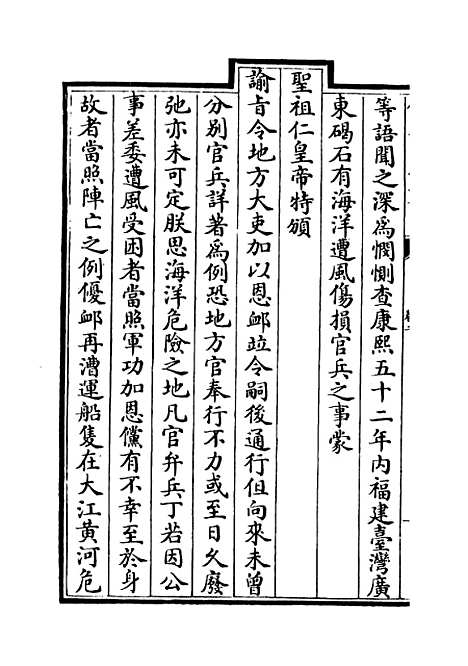 等語聞之深為憫惻查康熙五十二年內福建臺灣廣
東碣石有海洋遭風傷損官兵之事蒙
聖祖仁皇帝特頒
諭旨令地方大吏加以恩卹竝令嗣後通行但向來未曾
分别官兵詳著為例恐地方官奉行不力或至日久廢
弛亦未可定朕思海洋危險之地凡官弁兵丁若因公
事差委遭風受困者當照軍功加恩儻有不幸至於身
故者當照陣亡之例優卹再漕運船隻在大江黄河危